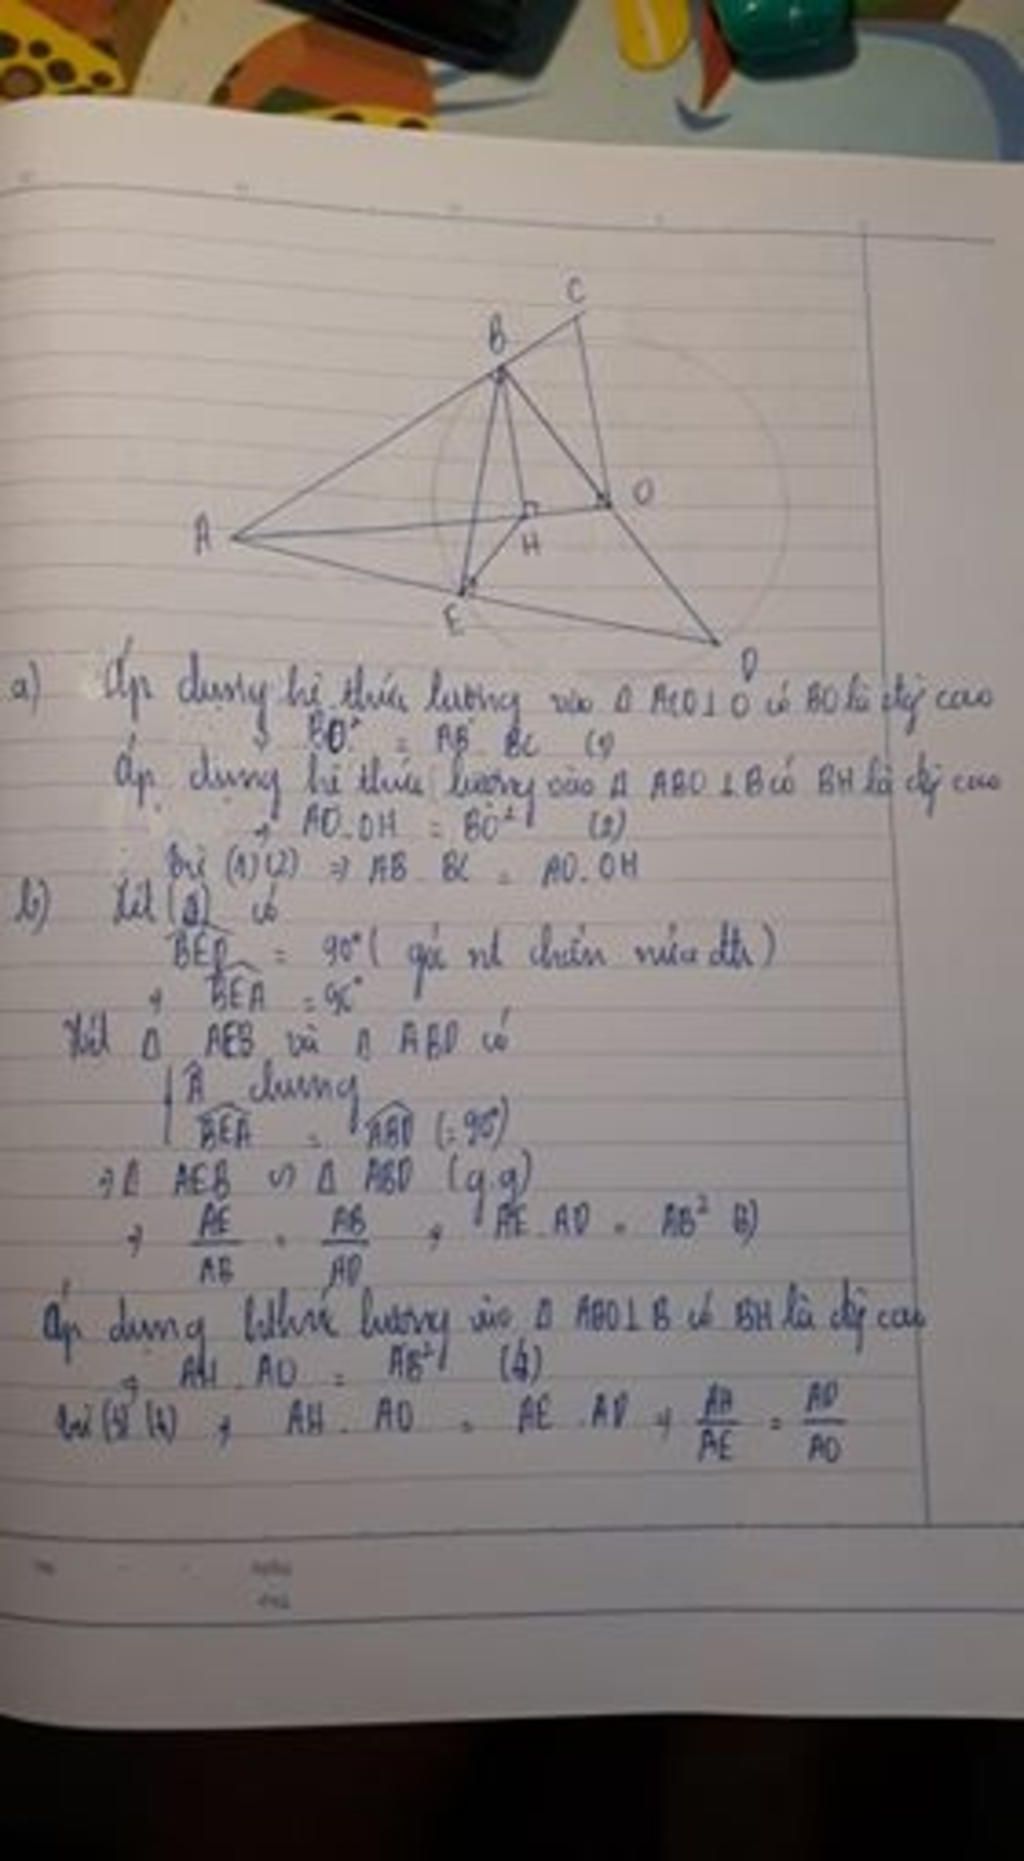 C
B
O
A
H
E
D
a) Áp dụng hệ thức lượng vào Δ ACO ⊥ O có BO là đg cao
→ BO² = AB . BC (1)
Áp dụng hệ thức lượng vào Δ ABO ⊥ B có BH là đg cao
→ AO . OH = BO² (2)
Từ (1) (2) ⇒ AB . BC = AO . OH
b) Xét (O) có
BED = 90° ( góc nt chắn nửa đtr )
→ BEA = 90°
Xét Δ AEB và Δ ABD có
A chung
BEA = ABD (= 90°)
→ Δ AEB ∽ Δ ABD (g.g)
→ AE/AB = AB/AD → AE . AD = AB² (3)
Áp dụng hệ thức lượng vào Δ ABO ⊥ B có BH là đg cao
→ AH . AO = AB² (4)
Từ (3) (4) → AH . AO = AE . AD → AH/AE = AD/AO